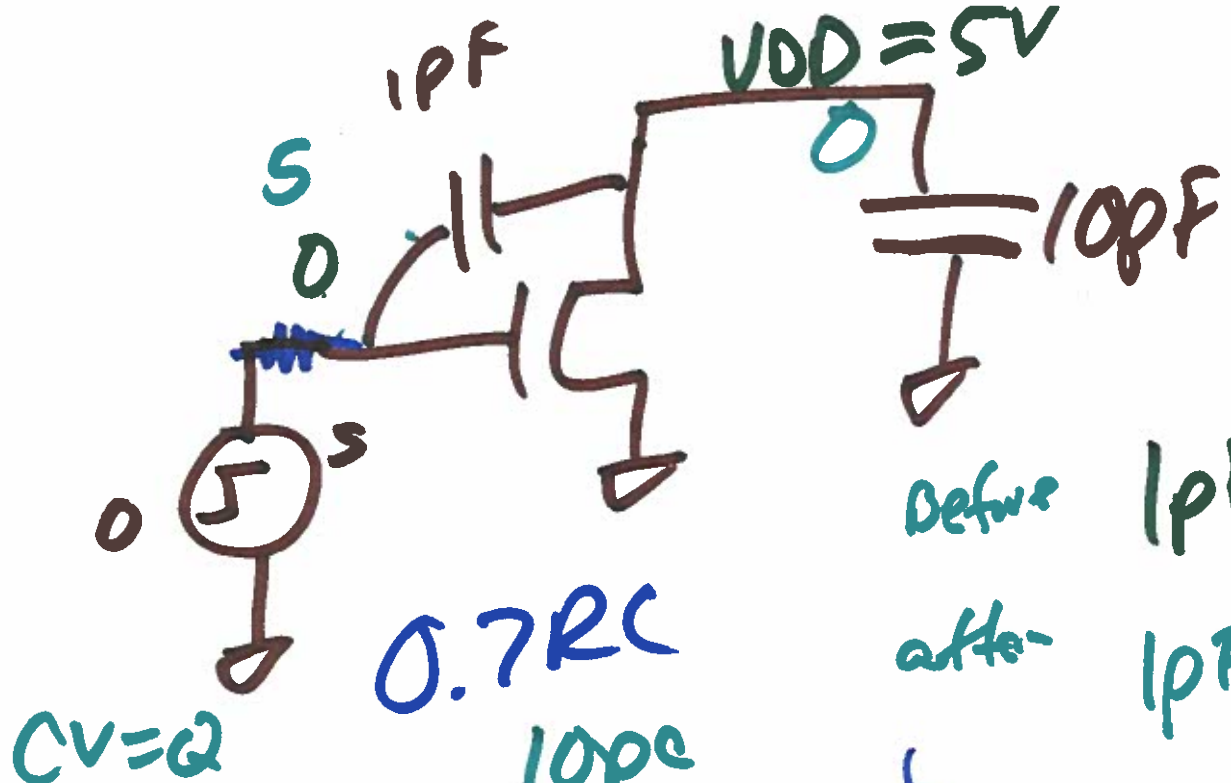 1pF
VDD = 5V
5
0
0
10pF
5
0
Before 1p
after 1p
0.7RC
CV=Q
10pC